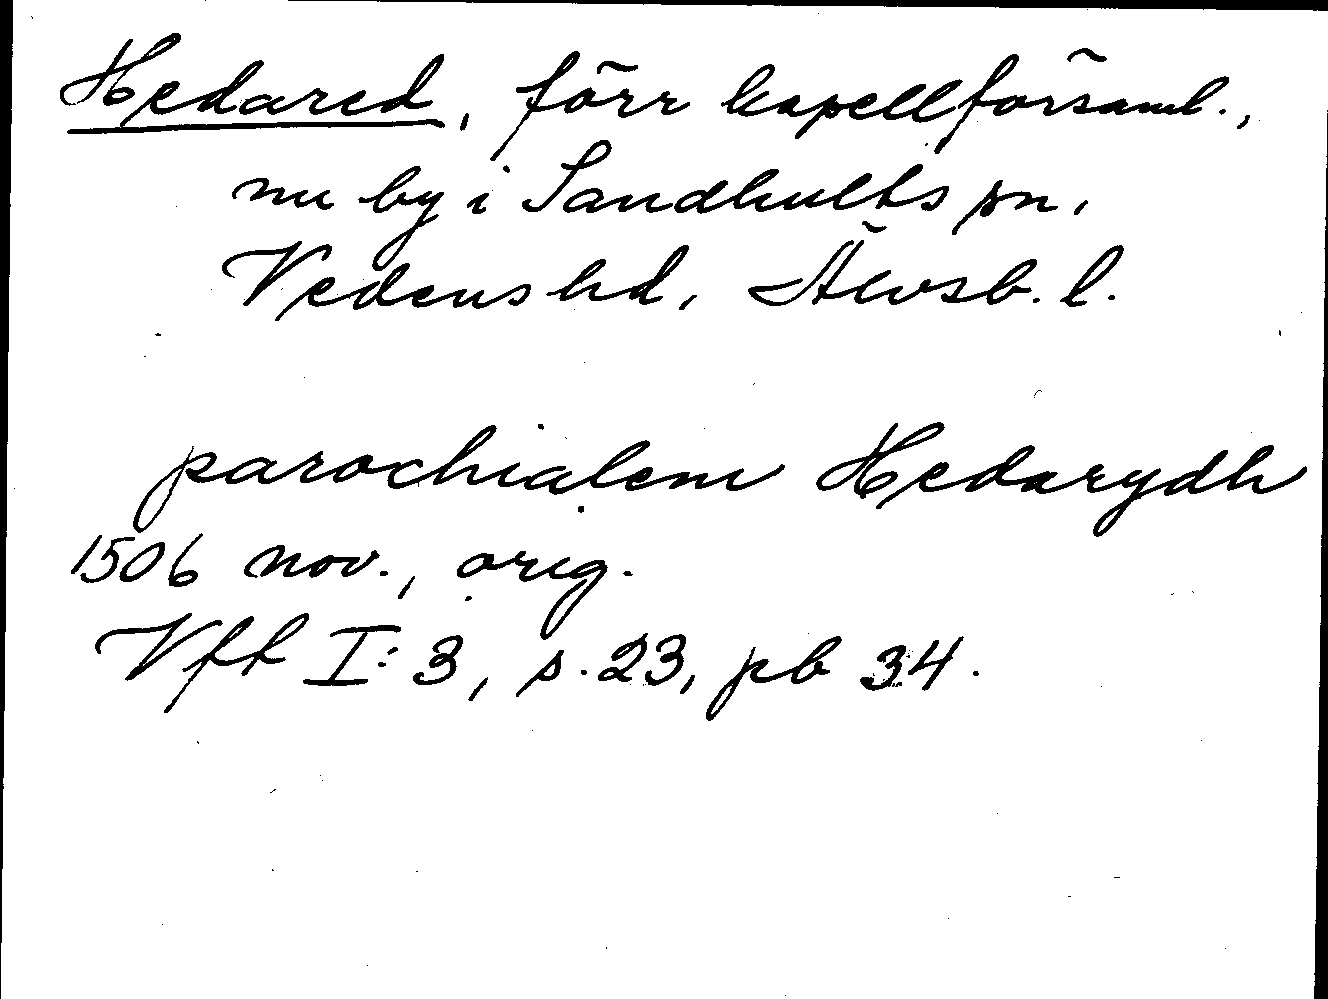 Hedared, förr kapellförsaml.,
nu by i Sandhults sn,
Vedens hd, Älvsb. l.
parochialem Hedarydh
1506 nov., orig.
Vft I:3, s. 23, pb 34.